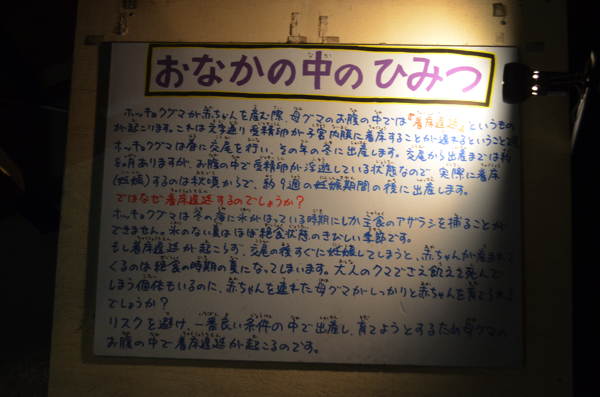 おなかの中のひみつ
ホッキョクグマが赤ちゃんを産む際、母グマのお腹の中では『着床遅延』というもの
が起こります。これは文字通り受精卵が子宮内膜に着床することが遅れるということです。
ホッキョクグマは春に交尾を行い、その年の冬に出産します。交尾から出産までは約
を有ありますが、お腹の中で受精卵が浮遊している状態なので、実際に着床
(妊娠)するのは秋頃からで、約9週の妊娠期間の後に出産します。
ではなぜ着床遅延するのでしょうか？
ホッキョクグマは冬の海に氷がはっている時期にしか主食のアザラシを捕ることが
できません。氷のない夏はほぼ絶食状態のきびしい季節です。
もし着床遅延が起こらず、交尾の後すぐに妊娠してしまうと、赤ちゃんが産まれて
くるのは絶食の時期の夏になってしまいます。大人のクマでさえ飢えで死んで
しまう個体もいるのに、赤ちゃんを連れた母グマがしっかりと赤ちゃんを育てられる
でしょうか？
リスクを避け、一番良い条件の中で出産し、育てようとするため母グマの
お腹の中で着床遅延が起こるのです。